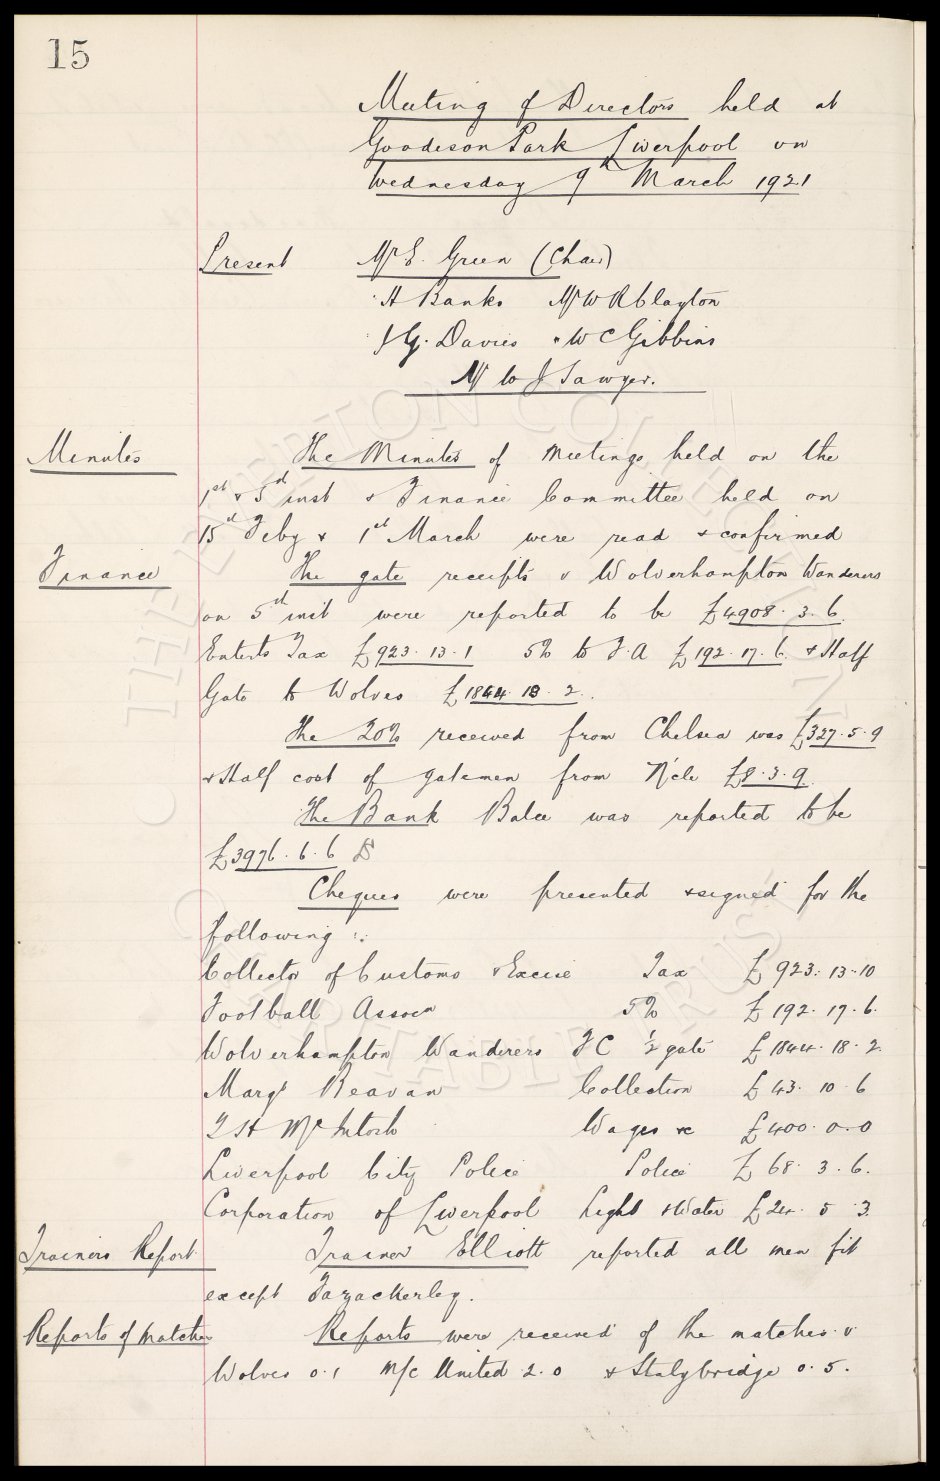 15
Meeting of Directors held at
Goodison Park Liverpool on
Wednesday 9th March 1921
Present Mr E. Green (Chair)
" H Banks Mr W R Clayton
" J G. Davies " W C Gibbins
Mr W J Sawyer.
Minutes The Minutes of meetings held on the
1st & 5th inst & Finance Committee held on
15th Feby & 1st March were read & confirmed
Finance The gate receipts v Wolverhampton Wanderers
on 5th inst were reported to be £4908. 3. 6.
Enterts Tax £923. 13. 1 5% to F.A £192. 17. 6. & Half
Gate to Wolves £1844. 18. 2.
The 20% received from Chelsea was £327. 5. 9
& Half cost of gatemen from N'cle £8. 3. 9.
The Bank Balce was reported to be
£3976. 6. 6 Dr
Cheques were presented & signed for the
following :.
Collector of Customs & Excise Tax £923. 13. 10
Football Assocn 5% £192. 17. 6.
Wolverhampton Wanderers FC ½ gate £1844. 18. 2.
Margt Beavan Collection £43. 10. 6
T H McIntosh Wages &c £400. 0. 0
Liverpool City Police Police £68. 3. 6.
Corporation of Liverpool Light & Water £24. 5. 3.
Trainers Report Trainer Elliott reported all men fit
except Fazackerley.
Reports of Matches Reports were received of the matches v
Wolves 0.1 M/c United 2.0 & Stalybridge 0.5.
THE EVERTON COLLECTION
CHARITABLE TRUST